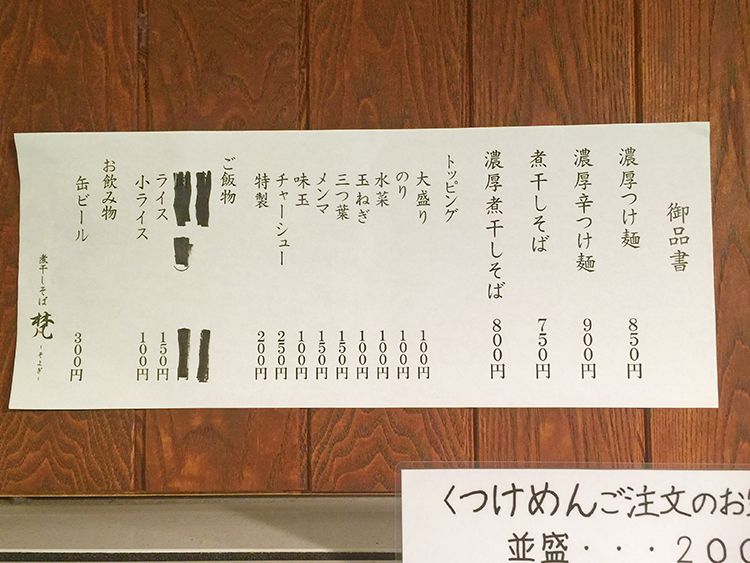 御品書
濃厚つけ麺 850円
濃厚辛つけ麺 900円
煮干しそば 750円
濃厚煮干しそば 800円
トッピング
大盛り 100円
のり 100円
水菜 100円
玉ねぎ 100円
三つ葉 150円
メンマ 150円
味玉 100円
チャーシュー 250円
特製 200円
ご飯物
ライス 150円
小ライス 100円
お飲み物
缶ビール 300円
煮干しそば 梵 -そよぎ-
〈つけめんご注文のお
並盛・・・200